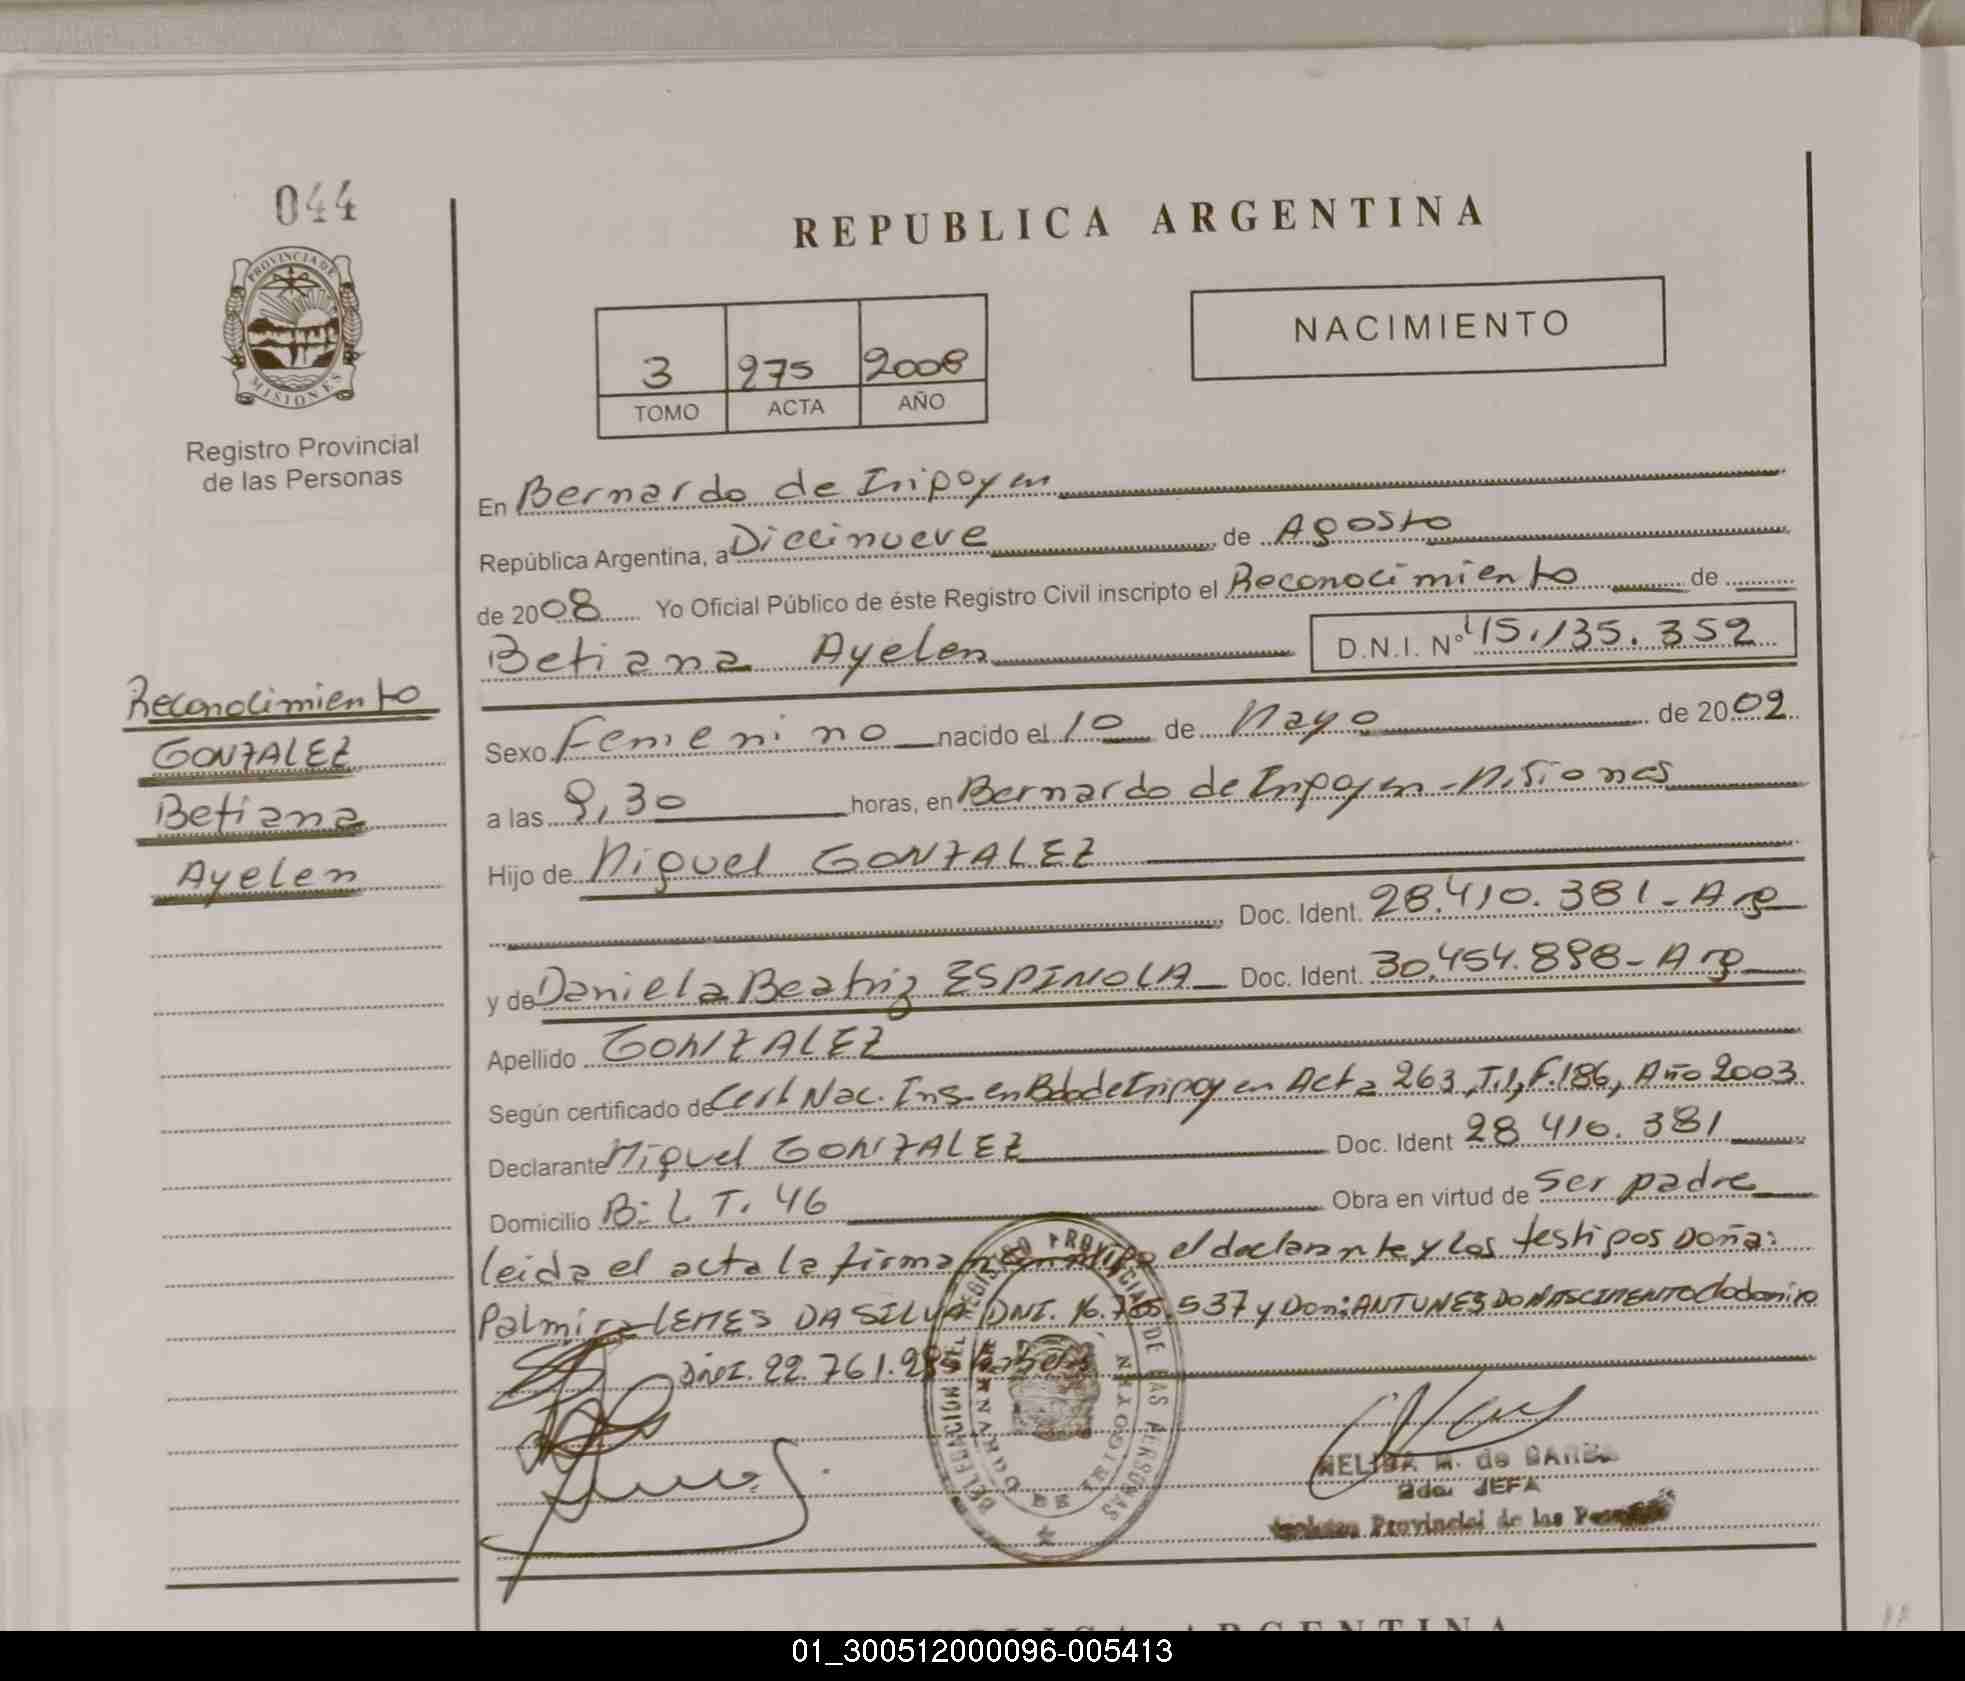 044
REPUBLICA ARGENTINA
PROVINCIA DE MISIONES
Registro Provincial
de las Personas
3 275 2008
TOMO ACTA AÑO
NACIMIENTO
En Bernardo de Iripoyen
República Argentina, a Diecinueve de Agosto
de 2008 Yo Oficial Público de éste Registro Civil inscripto el Reconocimiento de
Betiana Ayelen D.N.I. Nº 45.135.352
Reconocimiento
GONZALEZ
Betiana
Ayelen
Sexo Femenino nacido el 10 de Mayo de 2002
a las 9,30 horas, en Bernardo de Iripoyen - Misiones
Hijo de Miguel GONZALEZ
Doc. Ident. 28.410.381 - Arg
y de Daniela Beatriz ESPINOLA Doc. Ident. 30.454.898 - Arg
Apellido GONZALEZ
Según certificado de Cert Nac. Ins. en Bdo de Iripoyen Acta 263, T.1, F.186, Año 2003
Declarante Miguel GONZALEZ Doc. Ident 28 410.381
Domicilio B: L T. 46 Obra en virtud de Ser padre
leida el acta la firma el declarante y los testigos Doña:
Palmira LEMES DA SILVA DNI. 16.765.537 y Don: ANTUNES DO NASCIMENTO Clodomiro
DNI. 22.761.985
DELEGACION DEL REGISTRO PROVINCIAL DE LAS PERSONAS
BERNARDO DE IRIGOYEN
NELIDA M. de BARBA
2da. JEFA
Provincial de las
REPUBLICA ARGENTINA
01_300512000096-005413